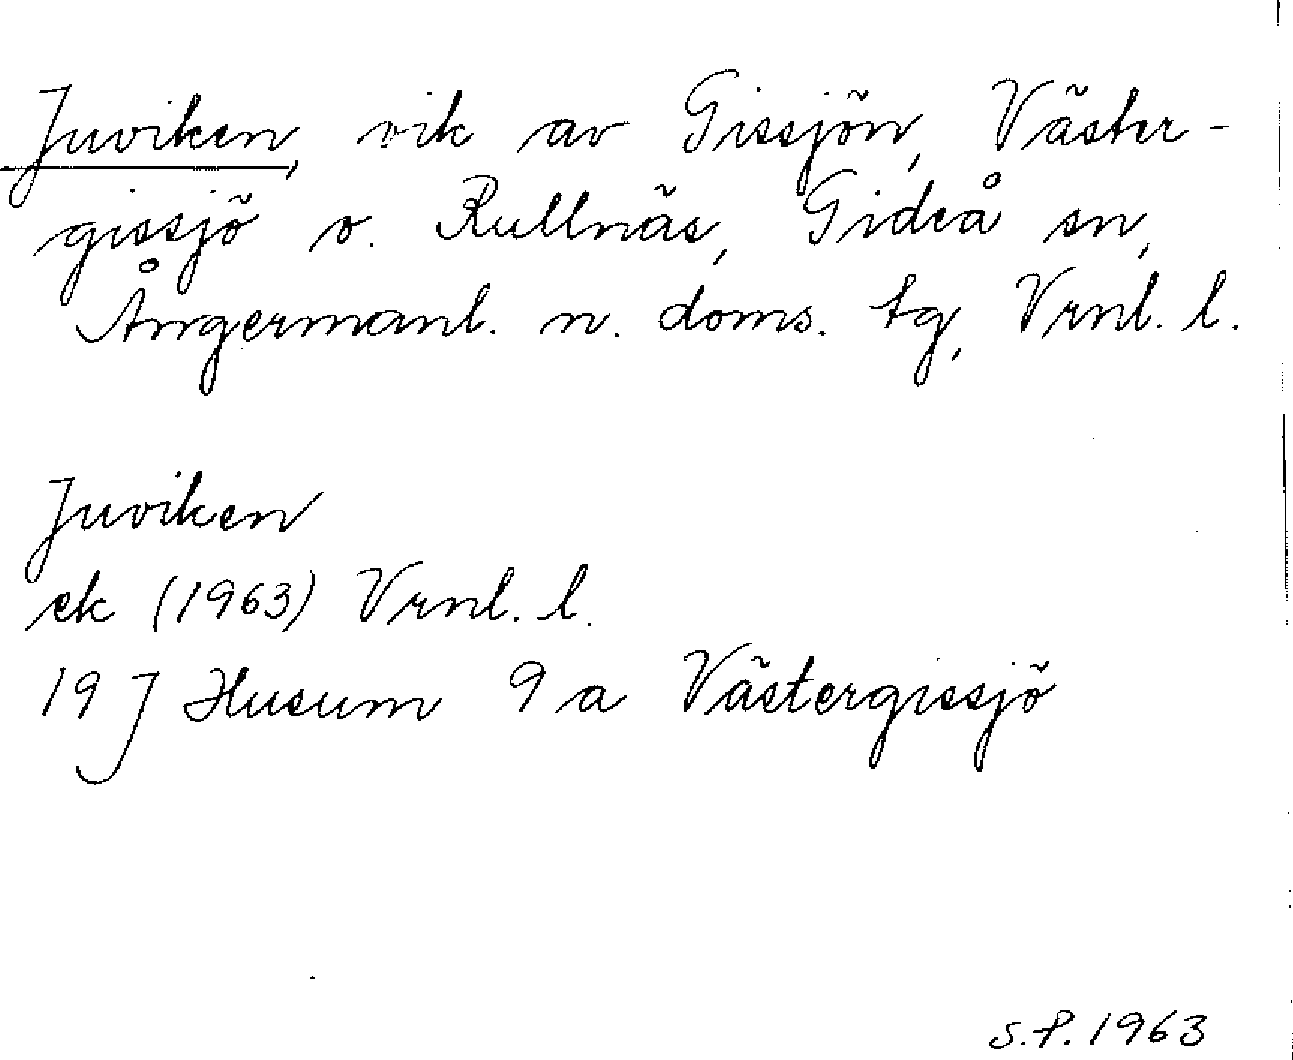 Juviken, vik av Gissjön, Väster-
gissjö o. Rullnäs, Gideå sn,
Ångermanl. n. doms. tg, Vrnl. l.
Juviken
ek (1963) Vrnl. l.
19 J Husum 9 a Västergissjö
S.P. 1963